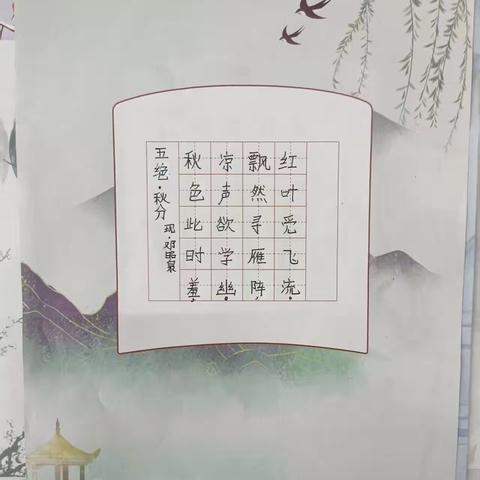 五绝·秋分
现·邓
秋色此时羞，
凉声欲学幽。
飘然寻雁阵，
红叶觅飞流。